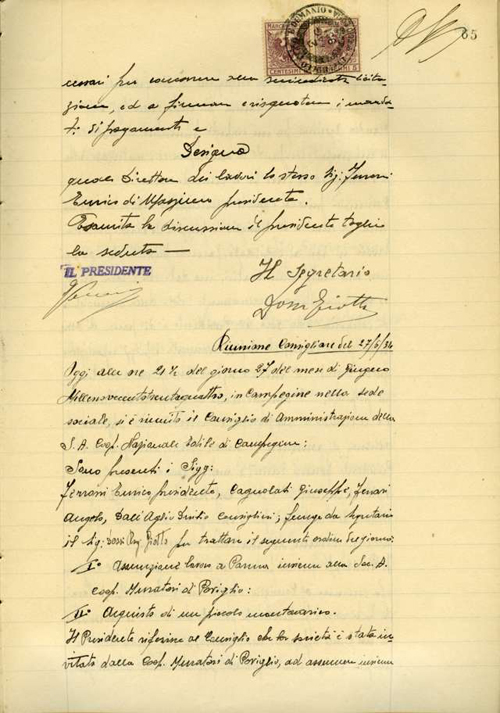 65
essari per concorrere alla sunnindicata licita-
zione, ed a firmare e riquotere i manda-
ti di pagamenti e
Designa
quale Direttore dei lavori lo stesso Sig. Ferrari
Enrico di Massimo presidente.
Esaurita la discussione il presidente toglie
la seduta —
IL PRESIDENTE
Il Segretario
Dossi Giotto
Riunione Consigliare del 27/6/34
Oggi alle ore 21 ½ del giorno 27 del mese di Giugno
Millenovecentotrentaquattro, in Campegine nella sede
sociale, si è riunito il Consiglio di Amministrazione della
S. A. Coop. Nazionale Edile di Campegine:
Sono presenti i Sigg:
Ferrari Enrico presidente, Cagnolati Giuseppe, Ferrari
Angelo, Dall'Aglio Duilio Consiglieri; funge da Segretario
il Sig. Dossi Rag. Giotto per trattare il seguente ordine del giorno:
I° Assunzione lavoro a Parma insieme alla Soc. A.
Coop. Muratori di Poviglio:
II° Acquisto di un piccolo montacarico.
Il Presidente riferisce al Consiglio che la società è stata in-
vitata dalla Coop. Muratori di Poviglio, ad assumere insieme